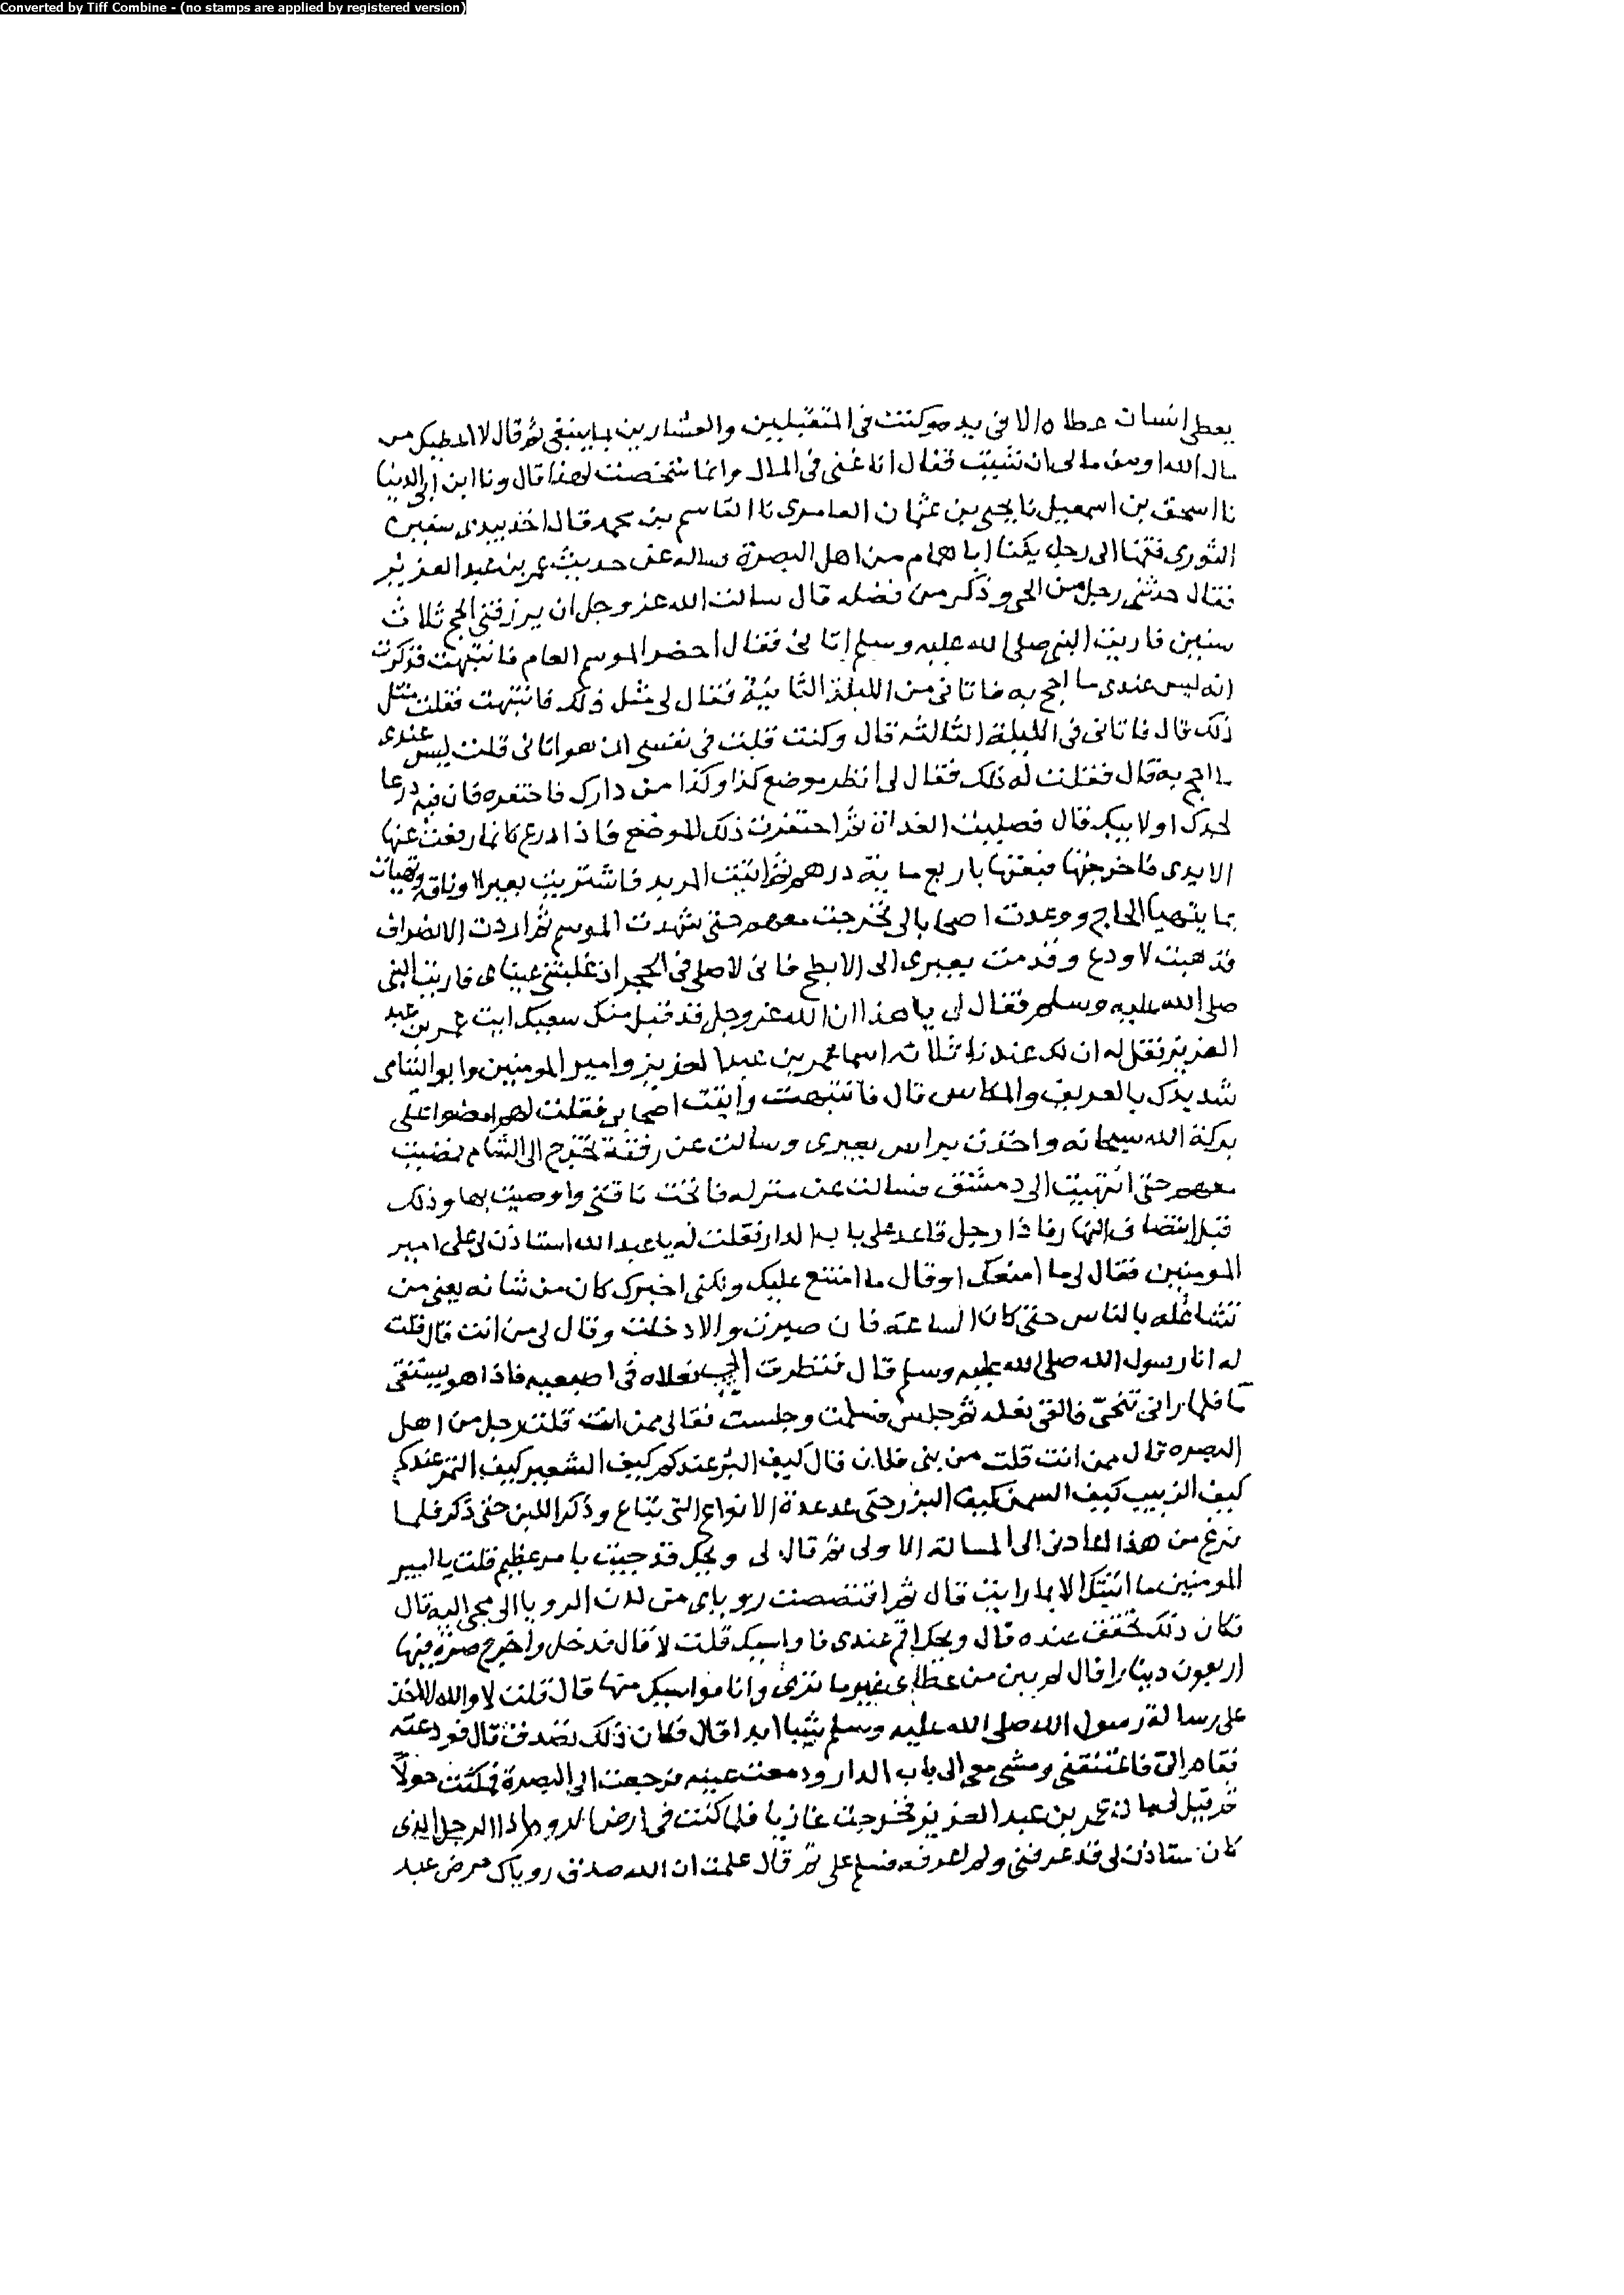 Converted by Tiff Combine - (no stamps are applied by registered version)
يعطى انسان عطاه الا فى يده وكتبت فى المتقبلين والعشارين بما ينبغى ثم قال لا اعطيك من
مال الله او من مالى ان شيت فقال انا غنى فى المال وانما شخصت لهذا قال ونا ابن ابى الدنيا
نا اسحق بن اسمعيل نا يحيى بن عثمان العامرى نا القاسم بن محمد قال اخذ بيدى سفين
الثورى فقمنا الى رجل يكنا ابا همام من اهل البصرة ساله عن حديث عمر بن عبد العزيز
فقال حدثنى رجل من الحى وذكر من فضله قال سالت الله عز وجل ان يرزقنى الحج ثلاث
سنين فاريت النبى صلى الله عليه وسلم اتانى فقال احضر الموسم العام فانتبهت فذكرت
انه ليس عندى ما احج به فاتانى من الليلة الثانية فقال لى مثل ذلك فانتبهت فقلت مثل
ذلك قال فاتانى فى الليلة الثالثه قال وكنت قلت فى نفسى ان هو اتانى قلت ليس عندى
ما احج به قال فقلت له ذلك فقال لى انظر موضع كذا وكذا من دارك فاحتفره فان فيه درعا
لجدك او لابيك قال فصليت الغداة ثم احتفرت ذلك الموضع فاذا درع كانما رفعت عنها
الايدى فاخرجتها فبعتها باربع ماية درهم ثم اتيت المربد فاشتريت بعيرا او ناقة وتهيات
بما يتهيا الحاج ووعدت اصحابا لى فخرجت معهم حتى شهدت الموسم ثم اردت الانصراف
فذهبت لاودع وقدمت بعيرى الى الابطح فانى لاصلى فى الحجر اذ غلبتنى عيناى فاريت النبى
صلى الله عليه وسلم فقال لى يا هذا ان الله عز وجل قد قبل منك سعيك ايت عمر بن عبد
العزيز فقل له ان لك عندنا ثلاثه اسما عمر بن عبد العزيز وامير المومنين وابو اليتامى
شد يدك بالعريف والمكاس قال فانتبهت واتيت اصحابى فقلت لهم امضوا على
بركة الله سبحانه واخذت براس بعيرى وسالت عن رفقة تخرج الى الشام فمضيت
معهم حتى انتهيت الى دمشق فسالت عن منزله فانخت ناقتى واوصيت بها وذلك
قبل انتصاف النهار فاذا رجل قاعد على باب الدار فقلت له يا عبد الله استاذن لى على امير
المومنين فقال لى ما امنعك او قال ما امتنع عليك ولكنى اخبرك كان من شانه يعنى من
تشاغله بالناس حتى كان الساعة فان صبرت والا دخلت وقال لى من انت قال قلت
له انا رسول رسول الله صلى الله عليه وسلم قال فنظرت نعلاه فى اصبعيه فاذا هو يستقى
ما فلما رانى تنحى فالقى نعله ثم جلس فسلمت وجلست فقال ممن انت قلت رجل من اهل
البصره قال ممن انت قلت من بنى فلان قال كيف البر عندكم كيف الشعير كيف التمر عندكم
كيف الزبيب كيف السمن كيف البزر حتى عد عدة الانواع التى تباع وذكر اللبن حتى ذكر فلما
فرغ من هذا اعادنى الى المسالة الاولى ثم قال لى ويحك قد جيت بامر عظيم قلت يا امير
المومنين ما اتيتك الا بما رايت قال ثم اقتصصت روياى من لدن الرويا الى مجى اليه قال
فكان ذلك تحقق عنده قال ويحك اقم عندى فاواسيك قلت لا قال فدخل واخرج صرة فيها
اربعون دينارا قال لم يبق من عطاى غير ما ترى وانا مواسيك منها قال قلت لا والله لا اخذ
على رسالة رسول الله صلى الله عليه وسلم شيا ابدا قال فكان ذلك تصدق قال فودعته
فقام الى فاعتنقنى ومشى معى الى باب الدار ودمعت عينه فرجعت الى البصرة فمكثت حولا
ثم قيل لى مات عمر بن عبد العزيز فخرجت غازيا فلما كنت فى ارض الروم اذا الرجل الذى
كان استاذن لى قد عرفنى ولم اعرفه فسلم على ثم قال علمت ان الله صدق روياك مرض عبد